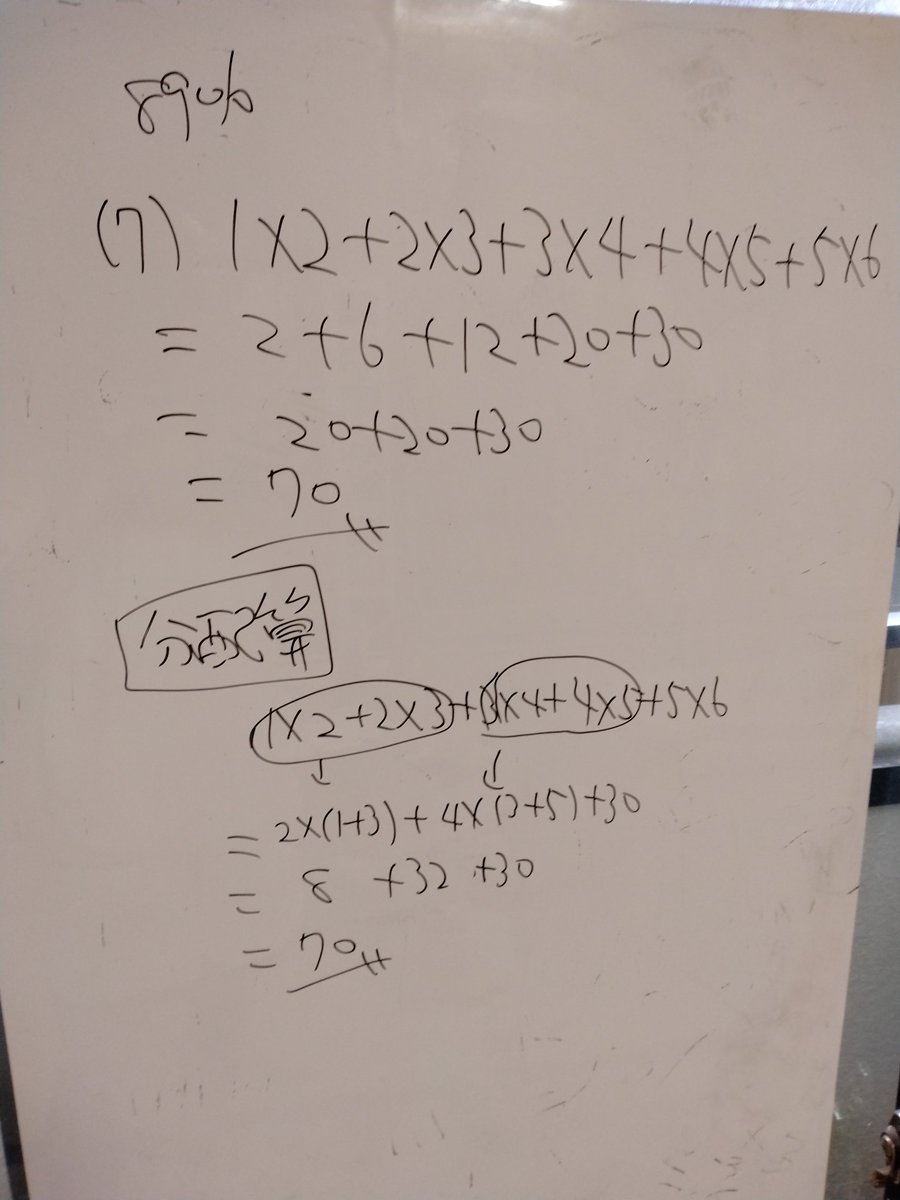 890%
(7) 1×2+2×3+3×4+4×5+5×6
= 2+6+12+20+30
= 20+20+30
= 70
分配算
1×2+2×3+3×4+4×5+5×6
↓ ↓
= 2×(1+3)+4×(3+5)+30
= 8 +32 +30
= 70